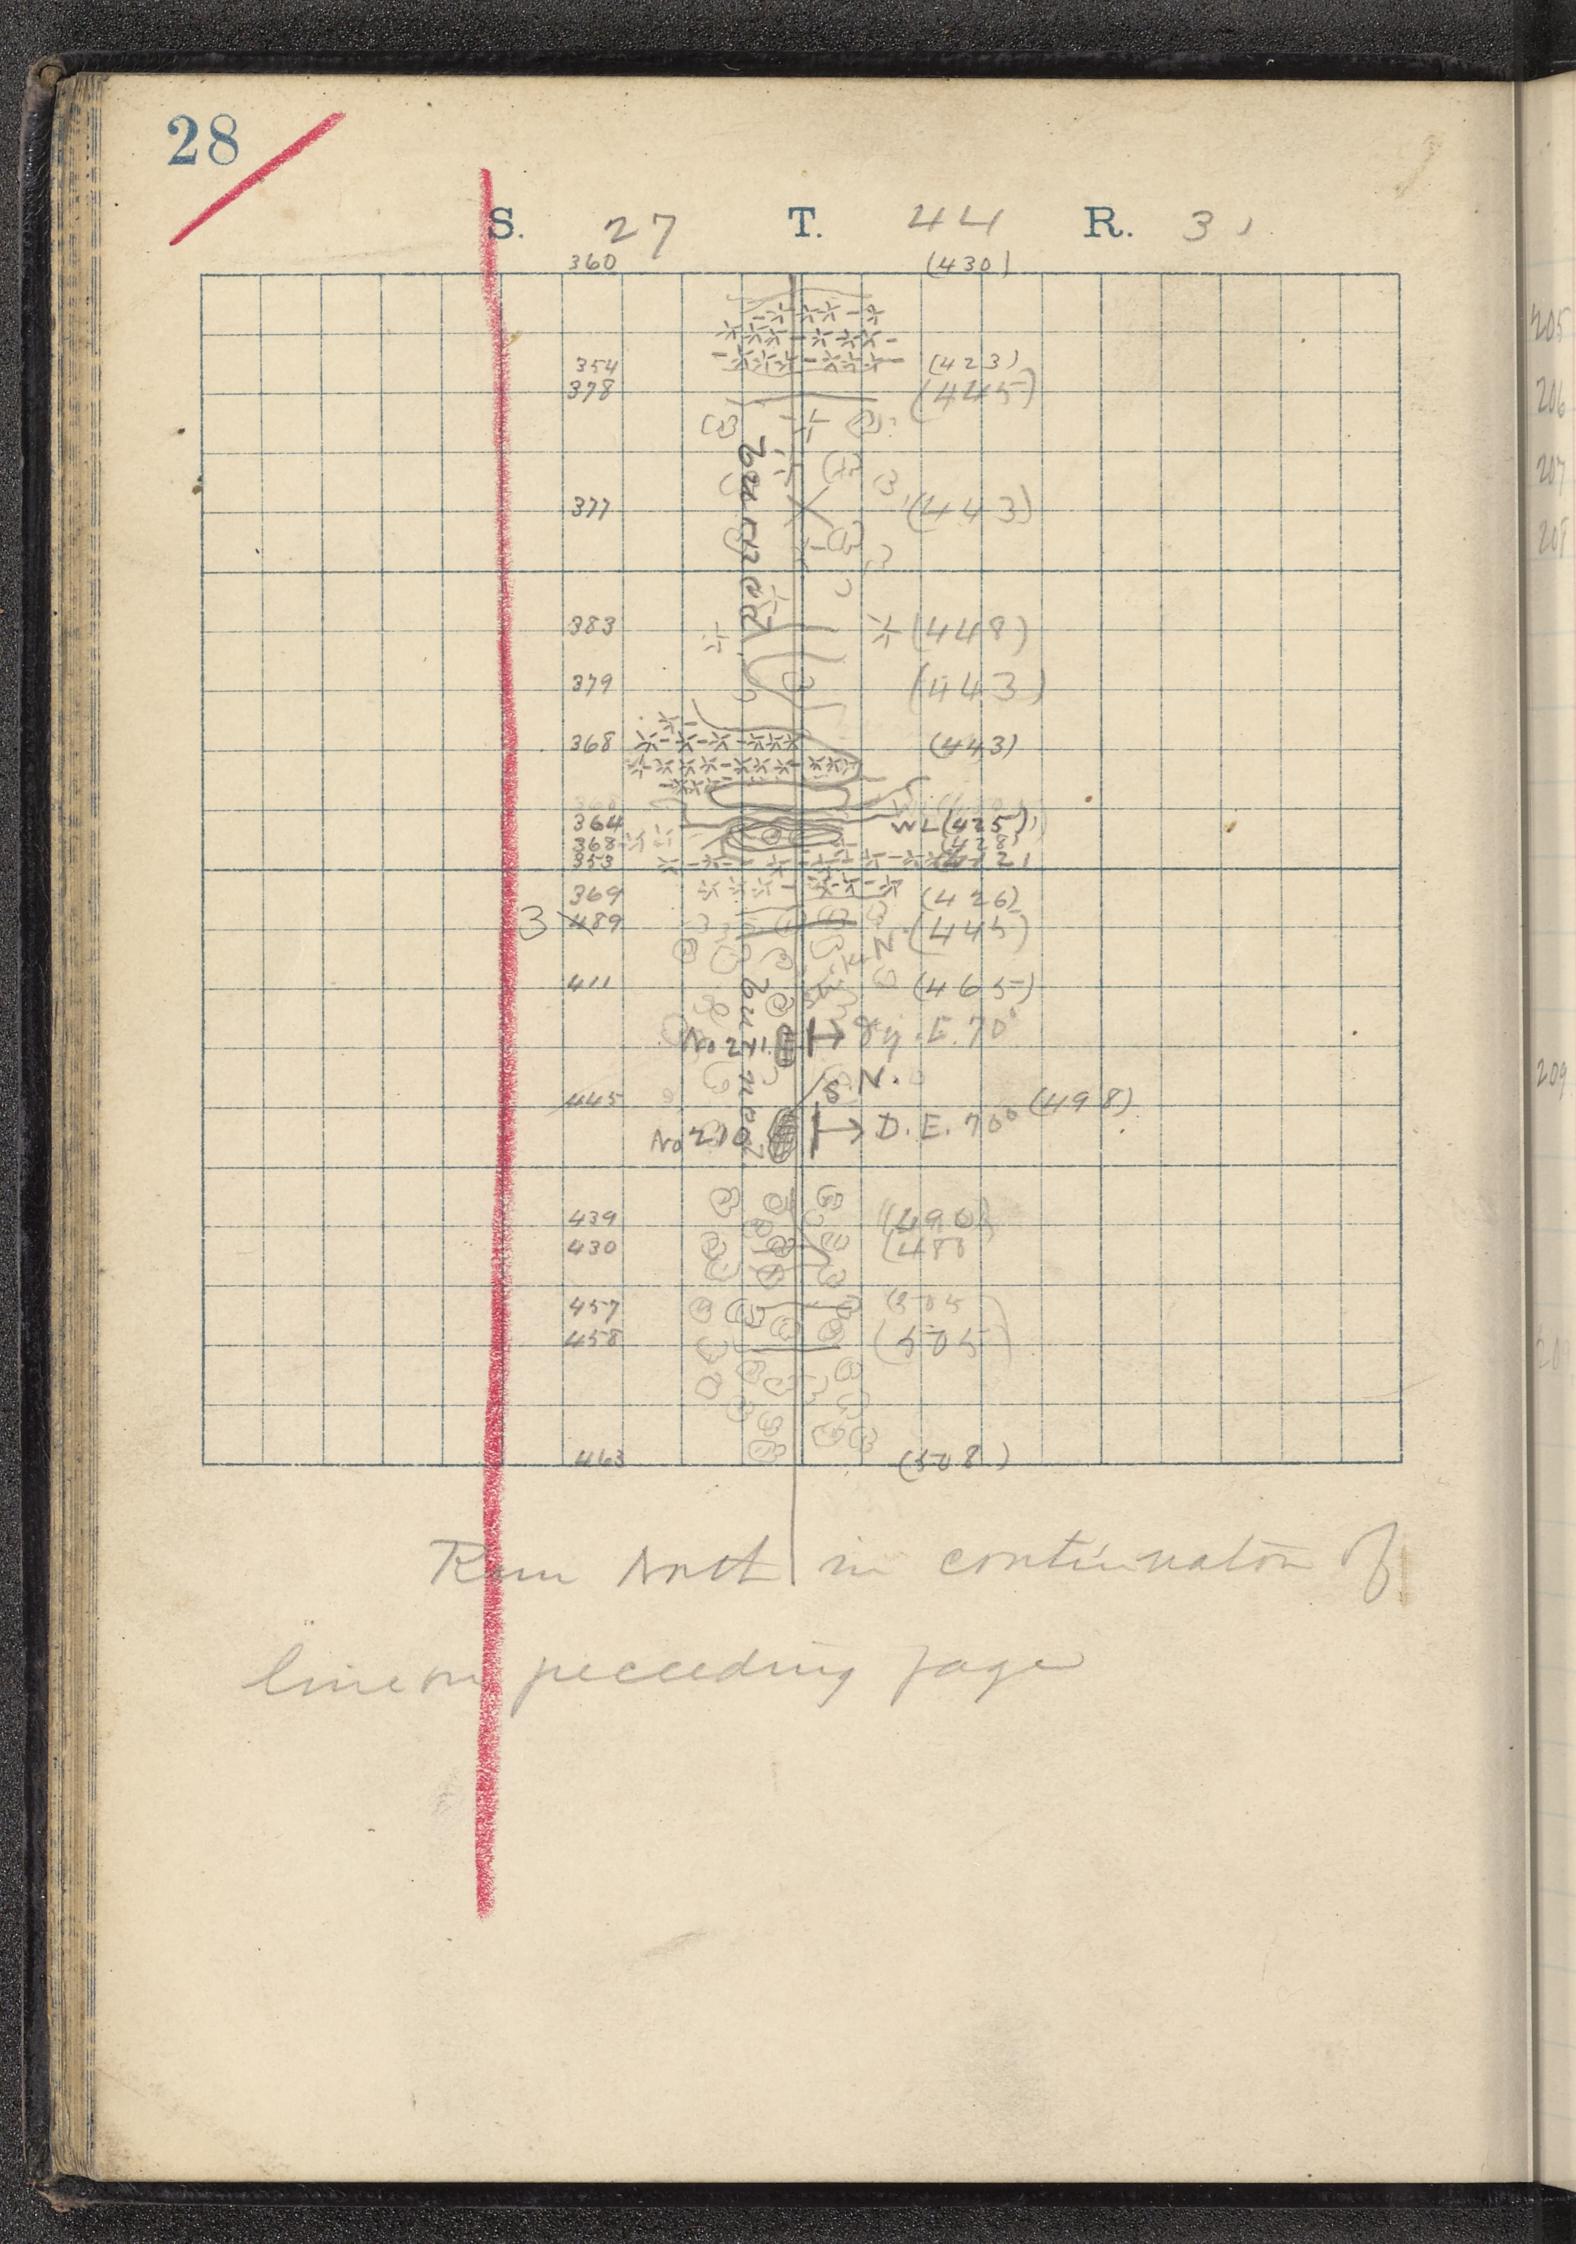 28
S. 27 T. 44 R. 31
360 (430)
354 (423)
378 (445)
burned
377 (443)
383 (448)
379 (443)
368 (443)
364 WL (425)
368 (428)
353
369 (426)
3 489 (445)
N.
411 (465)
No 211 E. 70°
S. N.
445 (498)
No 210 D. E. 70°
439 (490)
430 (480
457 (505
458 (505)
463 (508)
Run North in continuaton of
line on preceeding page
205
206
207
208
209